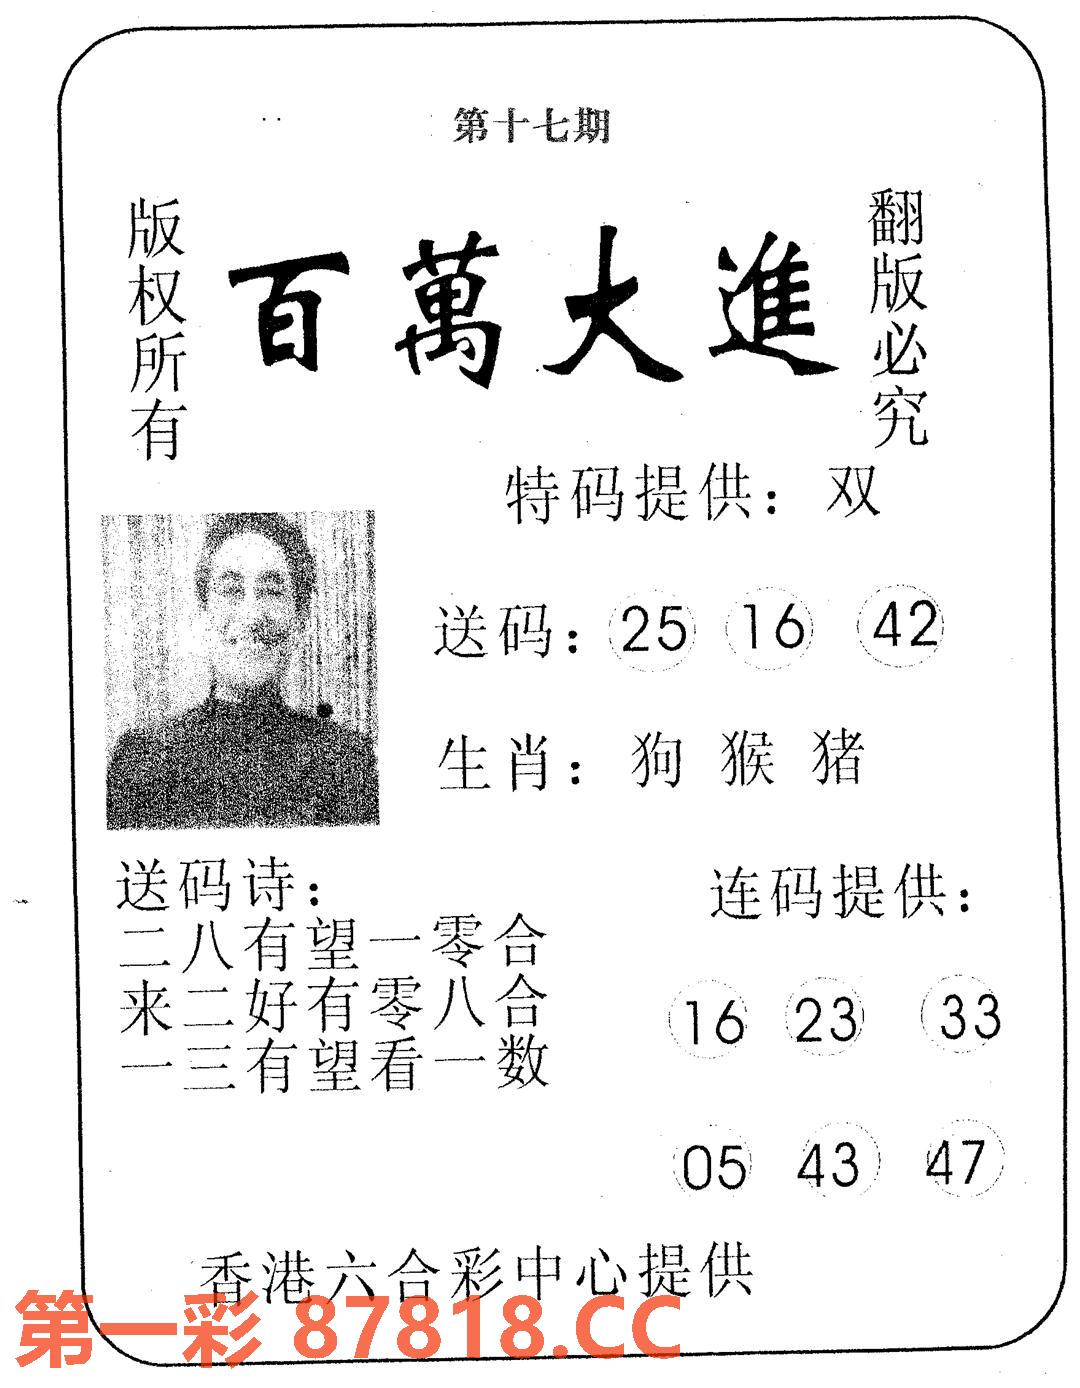 第十七期
版权所有
百萬大進
翻版必究
特码提供：双
送码：25 16 42
生肖：狗 猴 猪
送码诗：
二八有望一零合
来二好有零八合
一三有望看一数
连码提供：
16 23 33
05 43 47
香港六合彩中心提供
第一彩 87818.CC